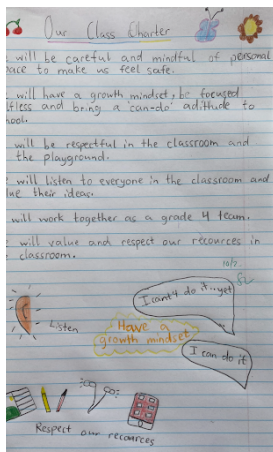 Our Class Charter
will be careful and mindful of personal
ace to make us feel safe.
will have a growth mindset, be focused
lfless and bring a 'can-do' adittude to
hool.
will be respectful in the classroom and
the playground.
will listen to everyone in the classroom and
lue their ideas.
will work together as a grade 4 team.
will value and respect our recources in
classroom.
I can't do it...yet
Listen
Have a
growth mindset
I can do it
Respect our recources